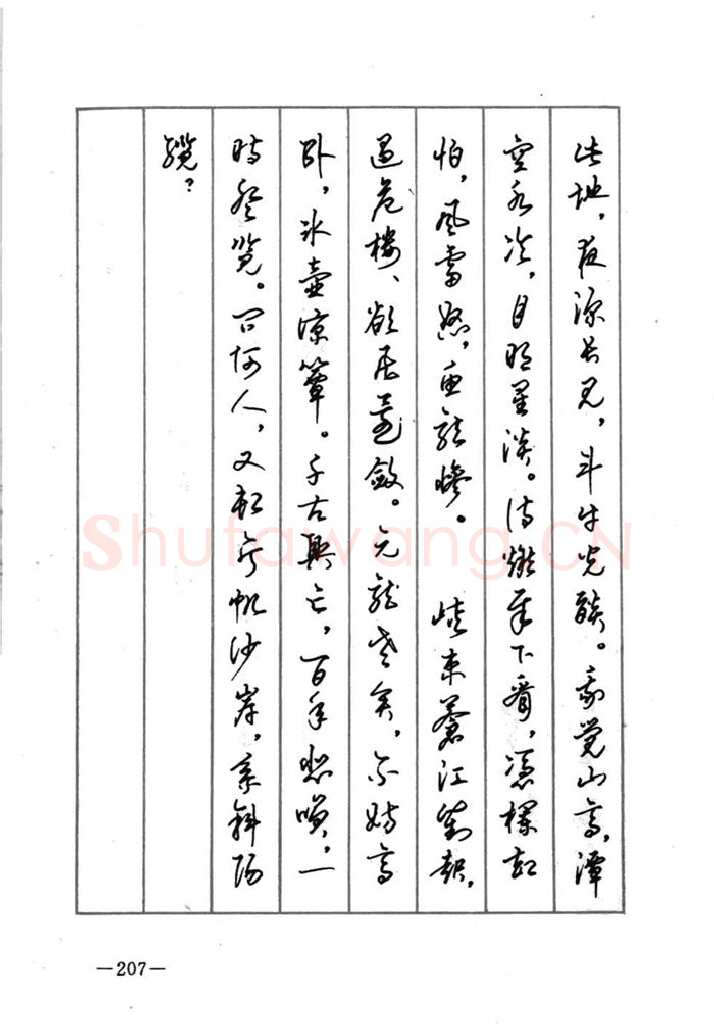 此地，夜深长见，斗牛光燄。我觉山高，潭
空水冷，月明星淡。待燃犀下看，凭栏却
怕，风雷怒，鱼龙惨。 峡束苍江对起，
过危楼、欲飞还敛。元龙老矣，不妨高
卧，冰壶凉簟。千古兴亡，百年悲笑，一
时登览。问何人，又却卸帆沙岸，系斜阳
缆？
Shufawang.CN
—207—